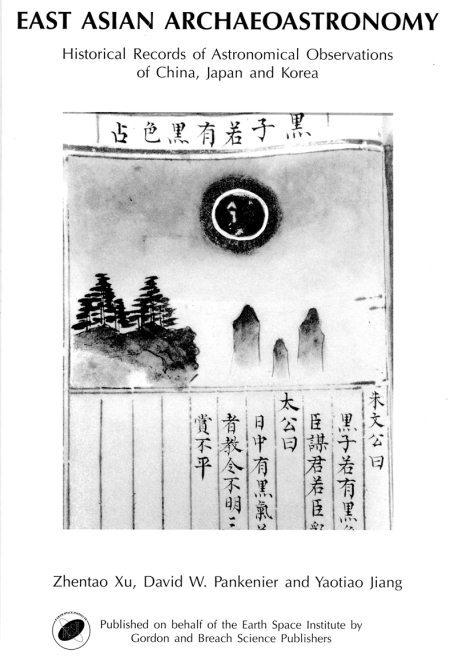 EAST ASIAN ARCHAEOASTRONOMY
Historical Records of Astronomical Observations
of China, Japan and Korea
黑子若有黑色占
朱文公曰
黑子若有黑
臣謀君若臣
太公曰
日中有黑氣
者教令不明
賞不平
Zhentao Xu, David W. Pankenier and Yaotiao Jiang
Published on behalf of the Earth Space Institute by
Gordon and Breach Science Publishers